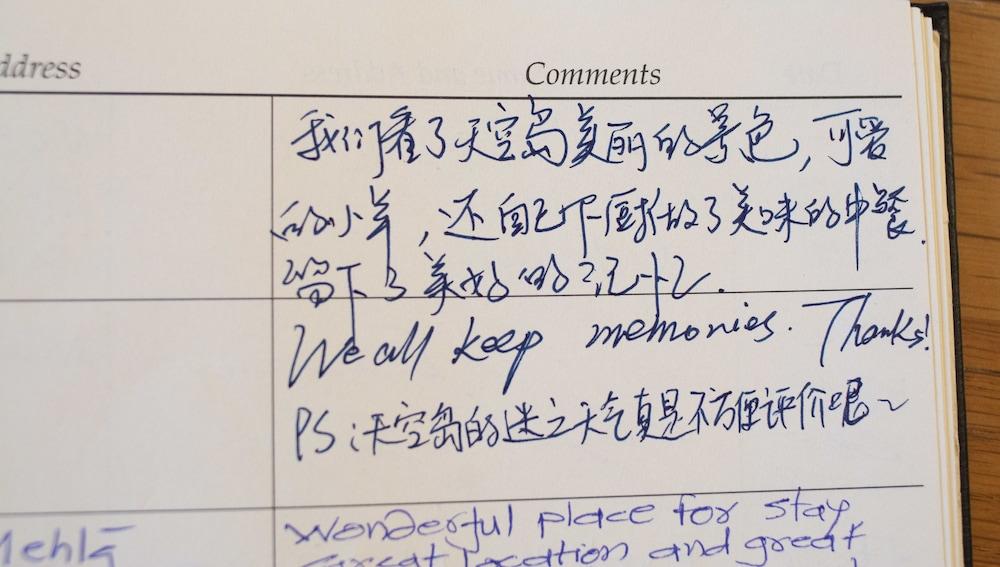 ddress
Comments
我们看了天空岛美丽的景色,可爱
的小羊,还自己下厨做了美味的中餐.
留下了美好的记忆.
We all keep memories. Thanks!
PS:天空岛的迷之天气真是不方便评价呢~
Mehla
Wonderful place for stay
Great location and great